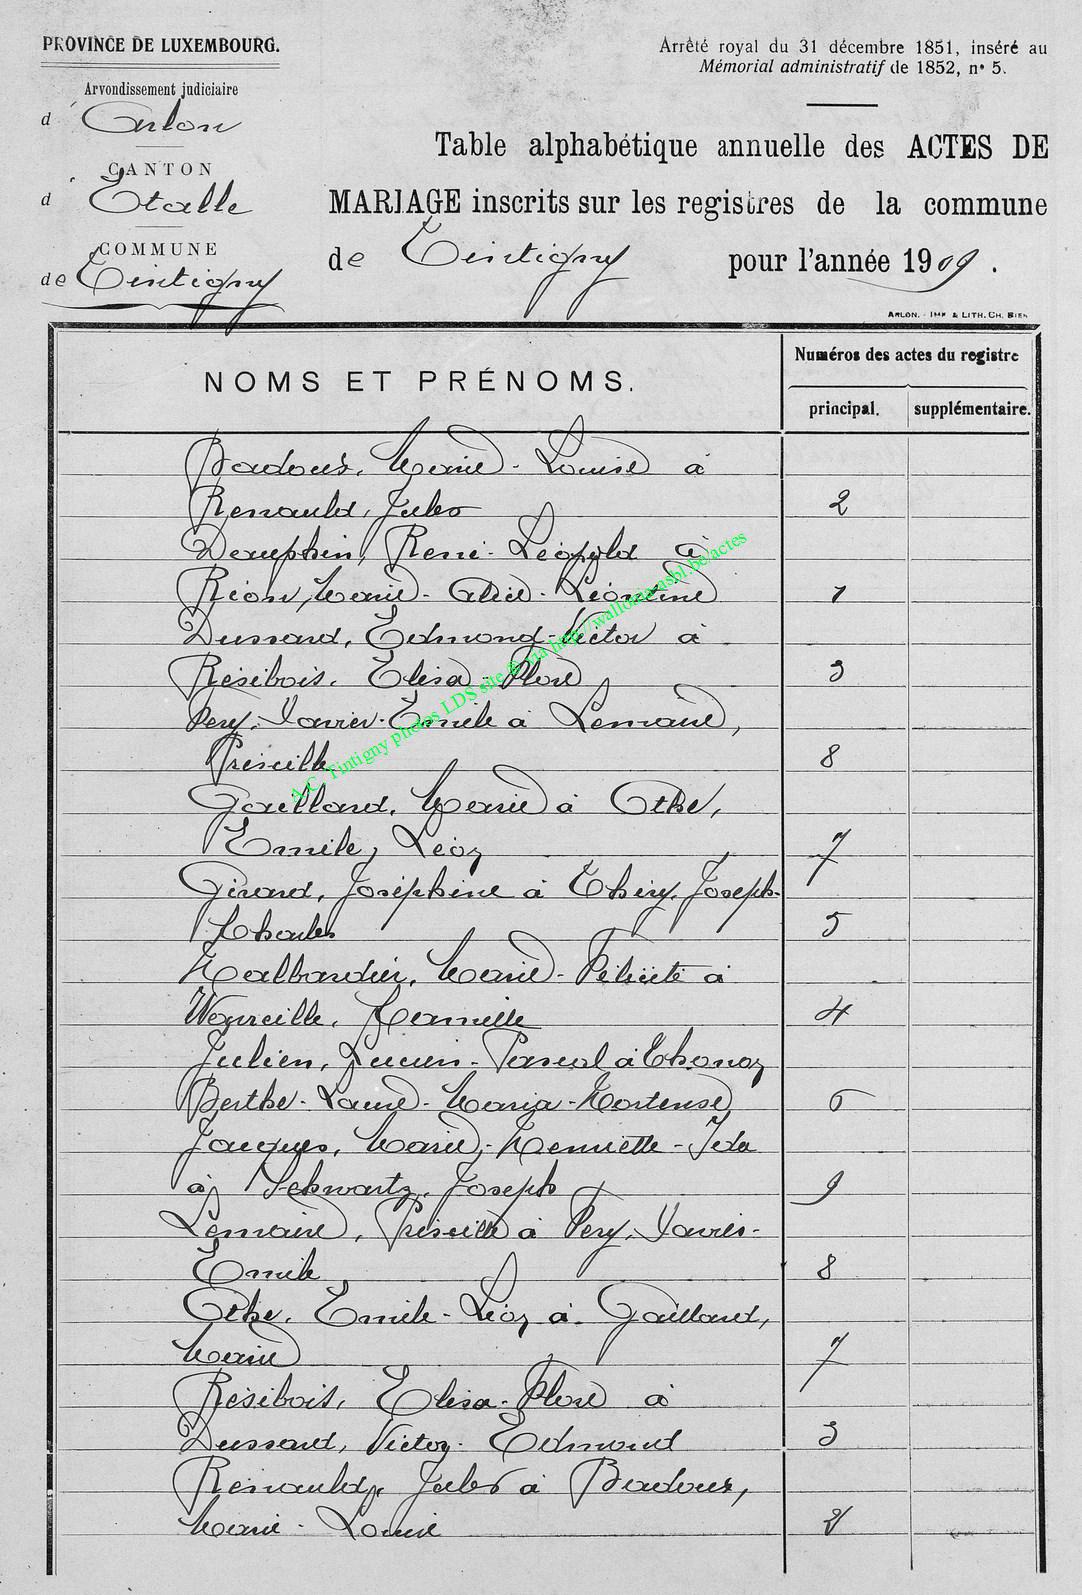 PROVINCE DE LUXEMBOURG.
Arvondissement judiciaire
d' Arlon
CANTON
d' Etalle
COMMUNE
de Tintigny
Arrêté royal du 31 décembre 1851, inséré au
Mémorial administratif de 1852, n° 5.
Table alphabétique annuelle des ACTES DE
MARIAGE inscrits sur les registres de la commune
de Tintigny pour l'année 1909.
ARLON. - IMP & LITH. CH. BIEN
NOMS ET PRÉNOMS.
Numéros des actes du registre
principal. supplémentaire.
Badoux, Marie-Louise à
Renauld, Jules 2
Dauphin, René-Léopold à
Rion, Marie-Alice-Léontine 1
Dussard, Edmond-Victor à
Résibois, Elisa-Flore 3
Fery, Xavier-Emile à Lemaire,
Priscille 8
Gaillard, Marie à Othe,
Emile, Léon 7
Girard, Joséphine à Thiry, Joseph-
Charles 5
Halbardier, Marie-Félicité à
Wavreille, Camille 4
Julien, Lucien-Pascal à Thonon
Berthe-Laure-Maria-Hortense 6
Jacques, Marie-Henriette-Ida
à Schwartz, Joseph 9
Lemaire, Priscille à Fery, Xavier-
Emile 8
Othe, Emile-Léon à Gaillard,
Marie 7
Résibois, Elisa-Flore à
Dussard, Victor-Edmond 3
Renauld, Jules à Badoux,
Marie-Louise 2
A.C. Tintigny photos LDS site & via http://wallonia-asbl.be/actes